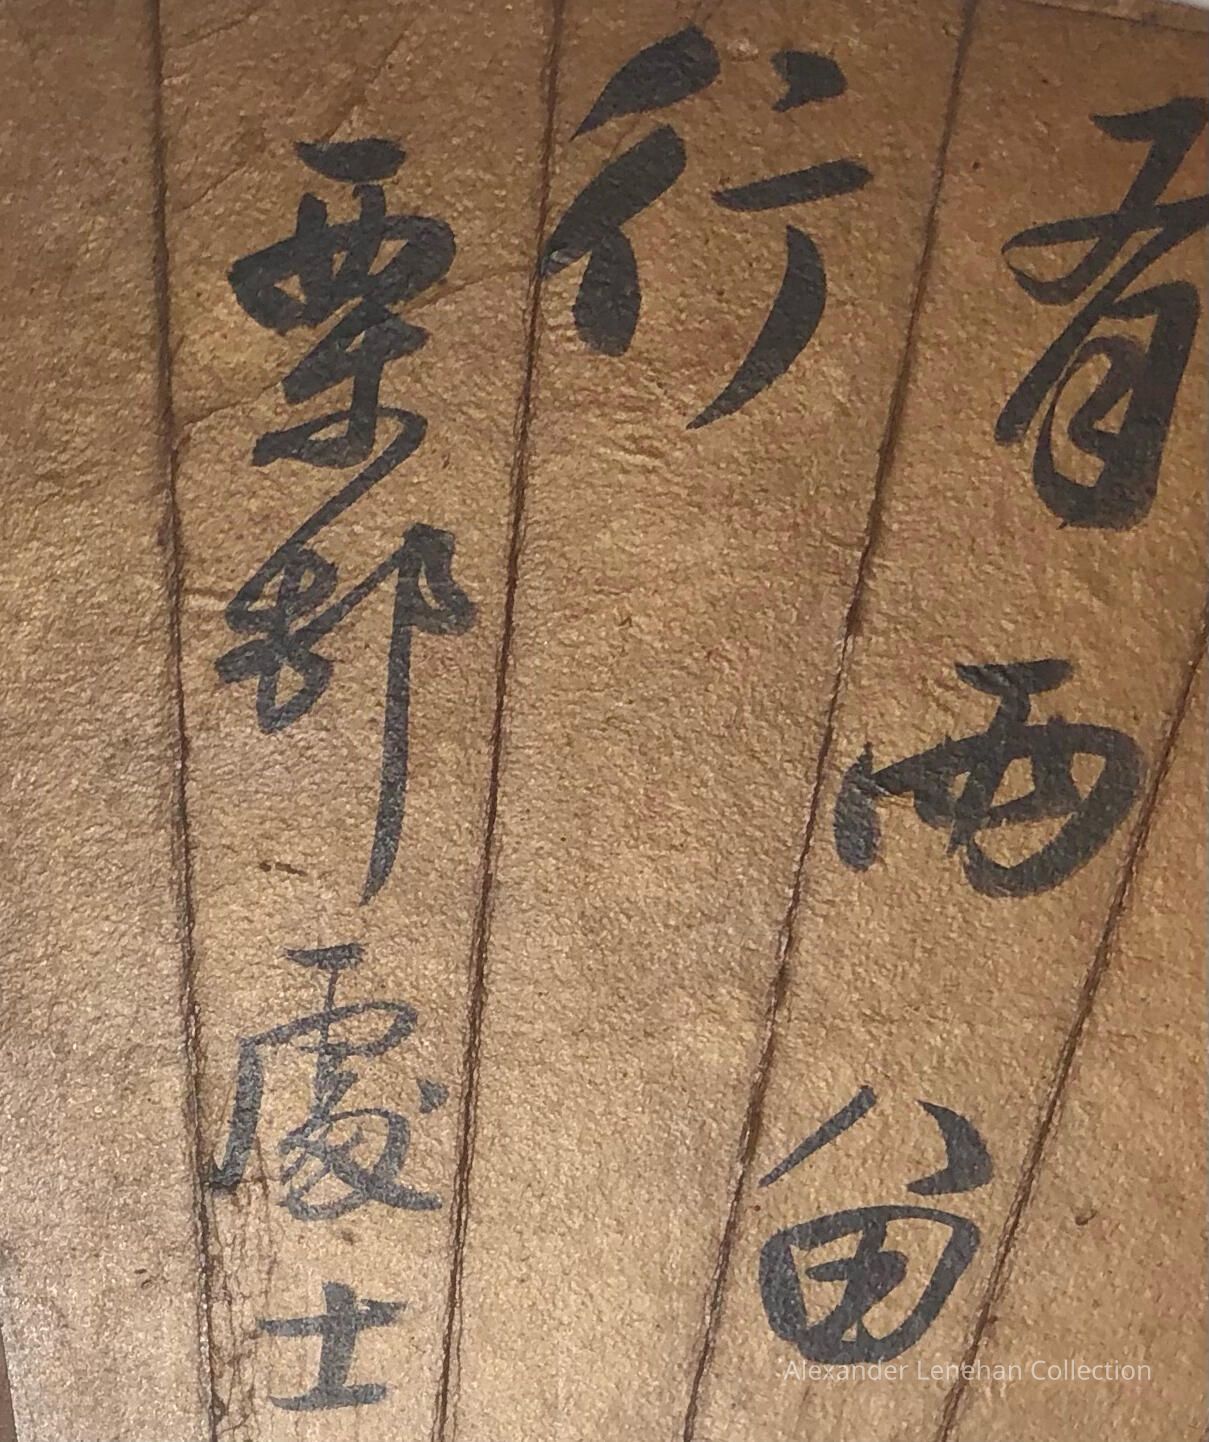 有雨公
行
栗部處士
Alexander Lenehan Collection